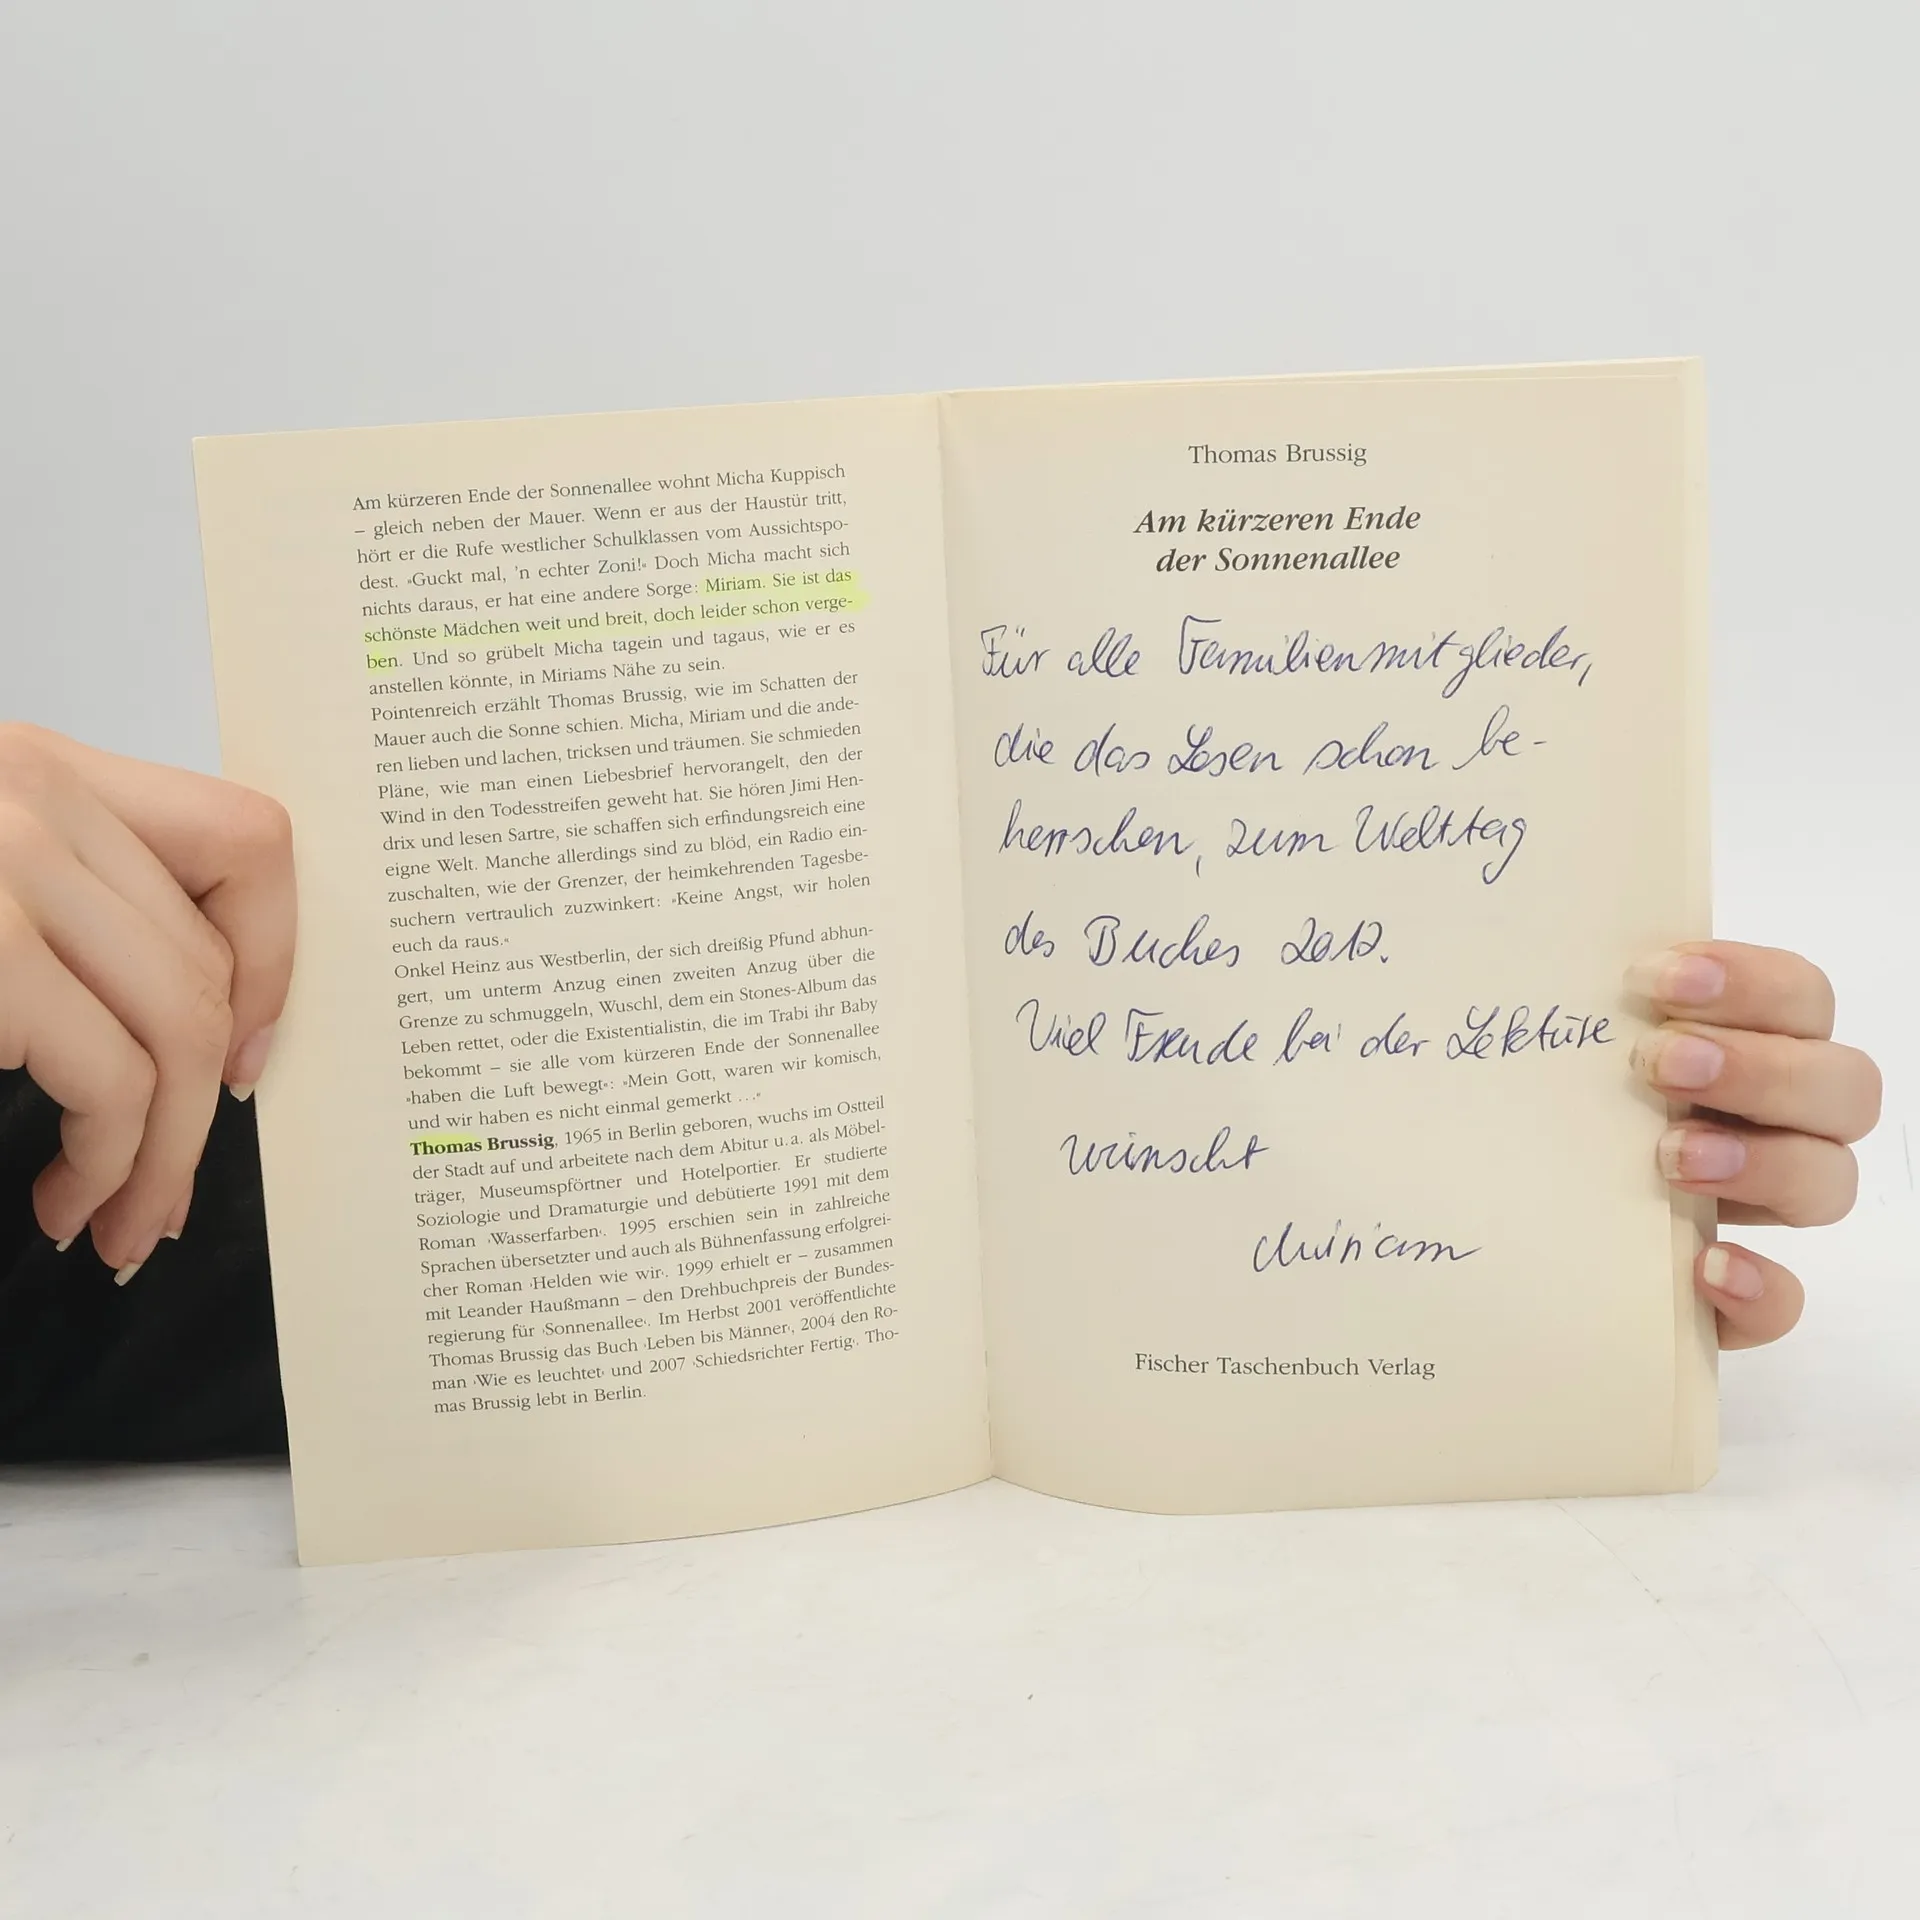 Am kürzeren Ende der Sonnenallee wohnt Micha Kuppisch
– gleich neben der Mauer. Wenn er aus der Haustür tritt,
hört er die Rufe westlicher Schulklassen vom Aussichtspo-
dest. »Guckt mal, 'n echter Zoni!« Doch Micha macht sich
nichts daraus, er hat eine andere Sorge: Miriam. Sie ist das
schönste Mädchen weit und breit, doch leider schon verge-
ben. Und so grübelt Micha tagein und tagaus, wie er es
anstellen könnte, in Miriams Nähe zu sein.
Pointenreich erzählt Thomas Brussig, wie im Schatten der
Mauer auch die Sonne schien. Micha, Miriam und die ande-
ren lieben und lachen, tricksen und träumen. Sie schmieden
Pläne, wie man einen Liebesbrief hervorangelt, den der
Wind in den Todesstreifen geweht hat. Sie hören Jimi Hen-
drix und lesen Sartre, sie schaffen sich erfindungsreich eine
eigne Welt. Manche allerdings sind zu blöd, ein Radio ein-
zuschalten, wie der Grenzer, der heimkehrenden Tagesbe-
suchern vertraulich zuzwinkert: »Keine Angst, wir holen
euch da raus.«
Onkel Heinz aus Westberlin, der sich dreißig Pfund abhun-
gert, um unterm Anzug einen zweiten Anzug über die
Grenze zu schmuggeln, Wuschl, dem ein Stones-Album das
Leben rettet, oder die Existentialistin, die im Trabi ihr Baby
bekommt – sie alle vom kürzeren Ende der Sonnenallee
»haben die Luft bewegt«: »Mein Gott, waren wir komisch,
und wir haben es nicht einmal gemerkt ...«
Thomas Brussig, 1965 in Berlin geboren, wuchs im Ostteil
der Stadt auf und arbeitete nach dem Abitur u. a. als Möbel-
träger, Museumspförtner und Hotelportier. Er studierte
Soziologie und Dramaturgie und debütierte 1991 mit dem
Roman ›Wasserfarben‹. 1995 erschien sein in zahlreiche
Sprachen übersetzter und auch als Bühnenfassung erfolgrei-
cher Roman ›Helden wie wir‹. 1999 erhielt er – zusammen
mit Leander Haußmann – den Drehbuchpreis der Bundes-
regierung für ›Sonnenallee‹. Im Herbst 2001 veröffentlichte
Thomas Brussig das Buch ›Leben bis Männer‹, 2004 den Ro-
man ›Wie es leuchtet‹ und 2007 ›Schiedsrichter Fertig‹. Tho-
mas Brussig lebt in Berlin.
Thomas Brussig
Am kürzeren Ende
der Sonnenallee
Für alle Familienmitglieder,
die das Lesen schon be-
herrschen, zum Welttag
des Buches 2012.
Viel Freude bei der Lektüre
wünscht
Miriam
Fischer Taschenbuch Verlag